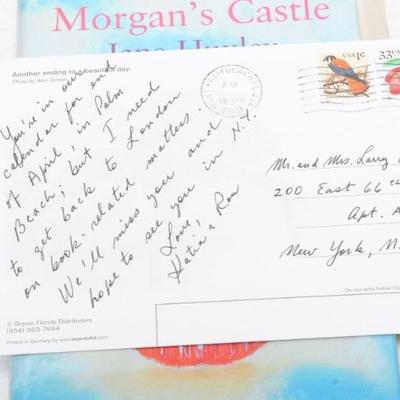 Morgan's Castle
Jane Huxley
Another ending to a beautiful day.
Photo by Alan
USA1c
33
PALM BEACH
PM
You're in our
calendar for end
of April, in Palm
Beach; but I need
to get back to London
on book-related matters
We'll miss you and
hope to see you in N.Y.
Love,
Katia & Ron
Mr. and Mrs. Larry
200 East 66th
Apt. A
New York, N.
Do not write below this
© Scenic Florida Distributors
(954) 963-7694
Printed in Germany by www.